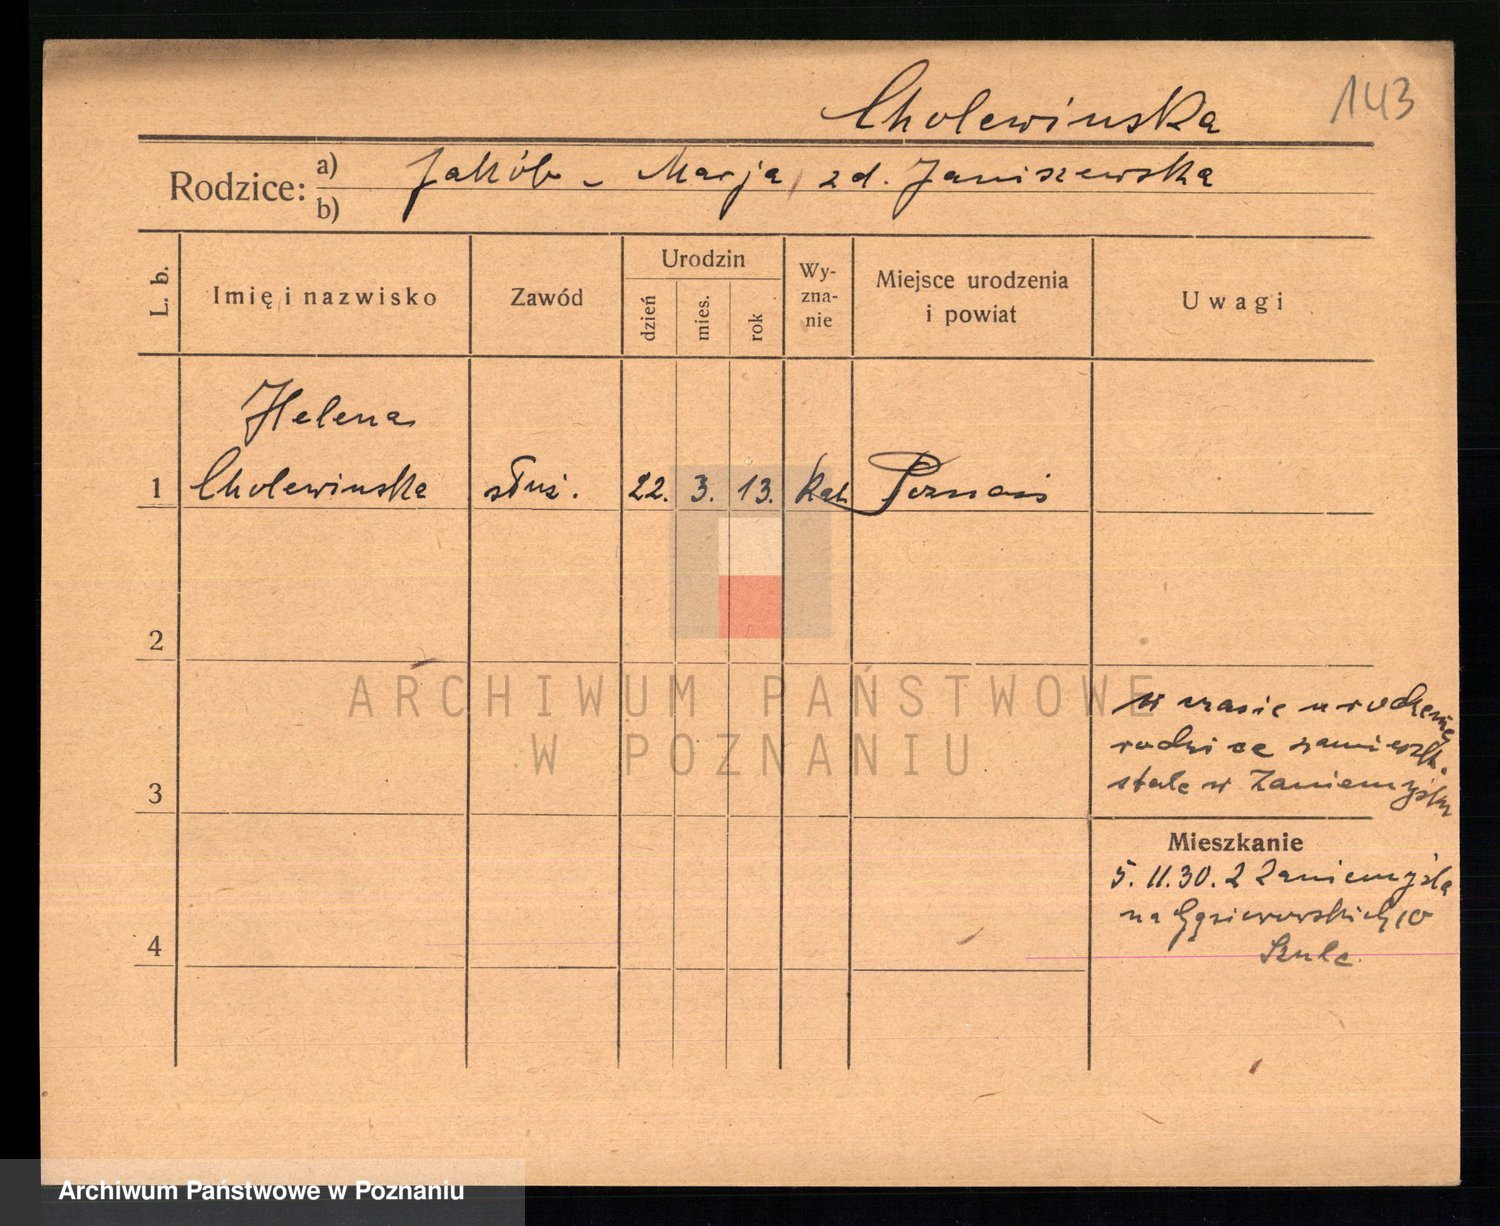 Cholewinska
143
Rodzice: a) Jakób - Marja, zd. Janiszewska
b)
L. b.
Imię i nazwisko
Zawód
Urodzin
dzień
mies.
rok
Wy-
zna-
nie
Miejsce urodzenia
i powiat
Uwagi
Helena
1 Cholewinska służ. 22. 3. 13. kat. Poznań
2
w czasie urodzenia
rodzice zamieszk.
3 stale w Zaniemyślu
Mieszkanie
5. 11. 30. z Zaniemyśla
na Gąsiorowskich 10
4 Szulc.
ARCHIWUM PAŃSTWOWE
W POZNANIU
Archiwum Państwowe w Poznaniu